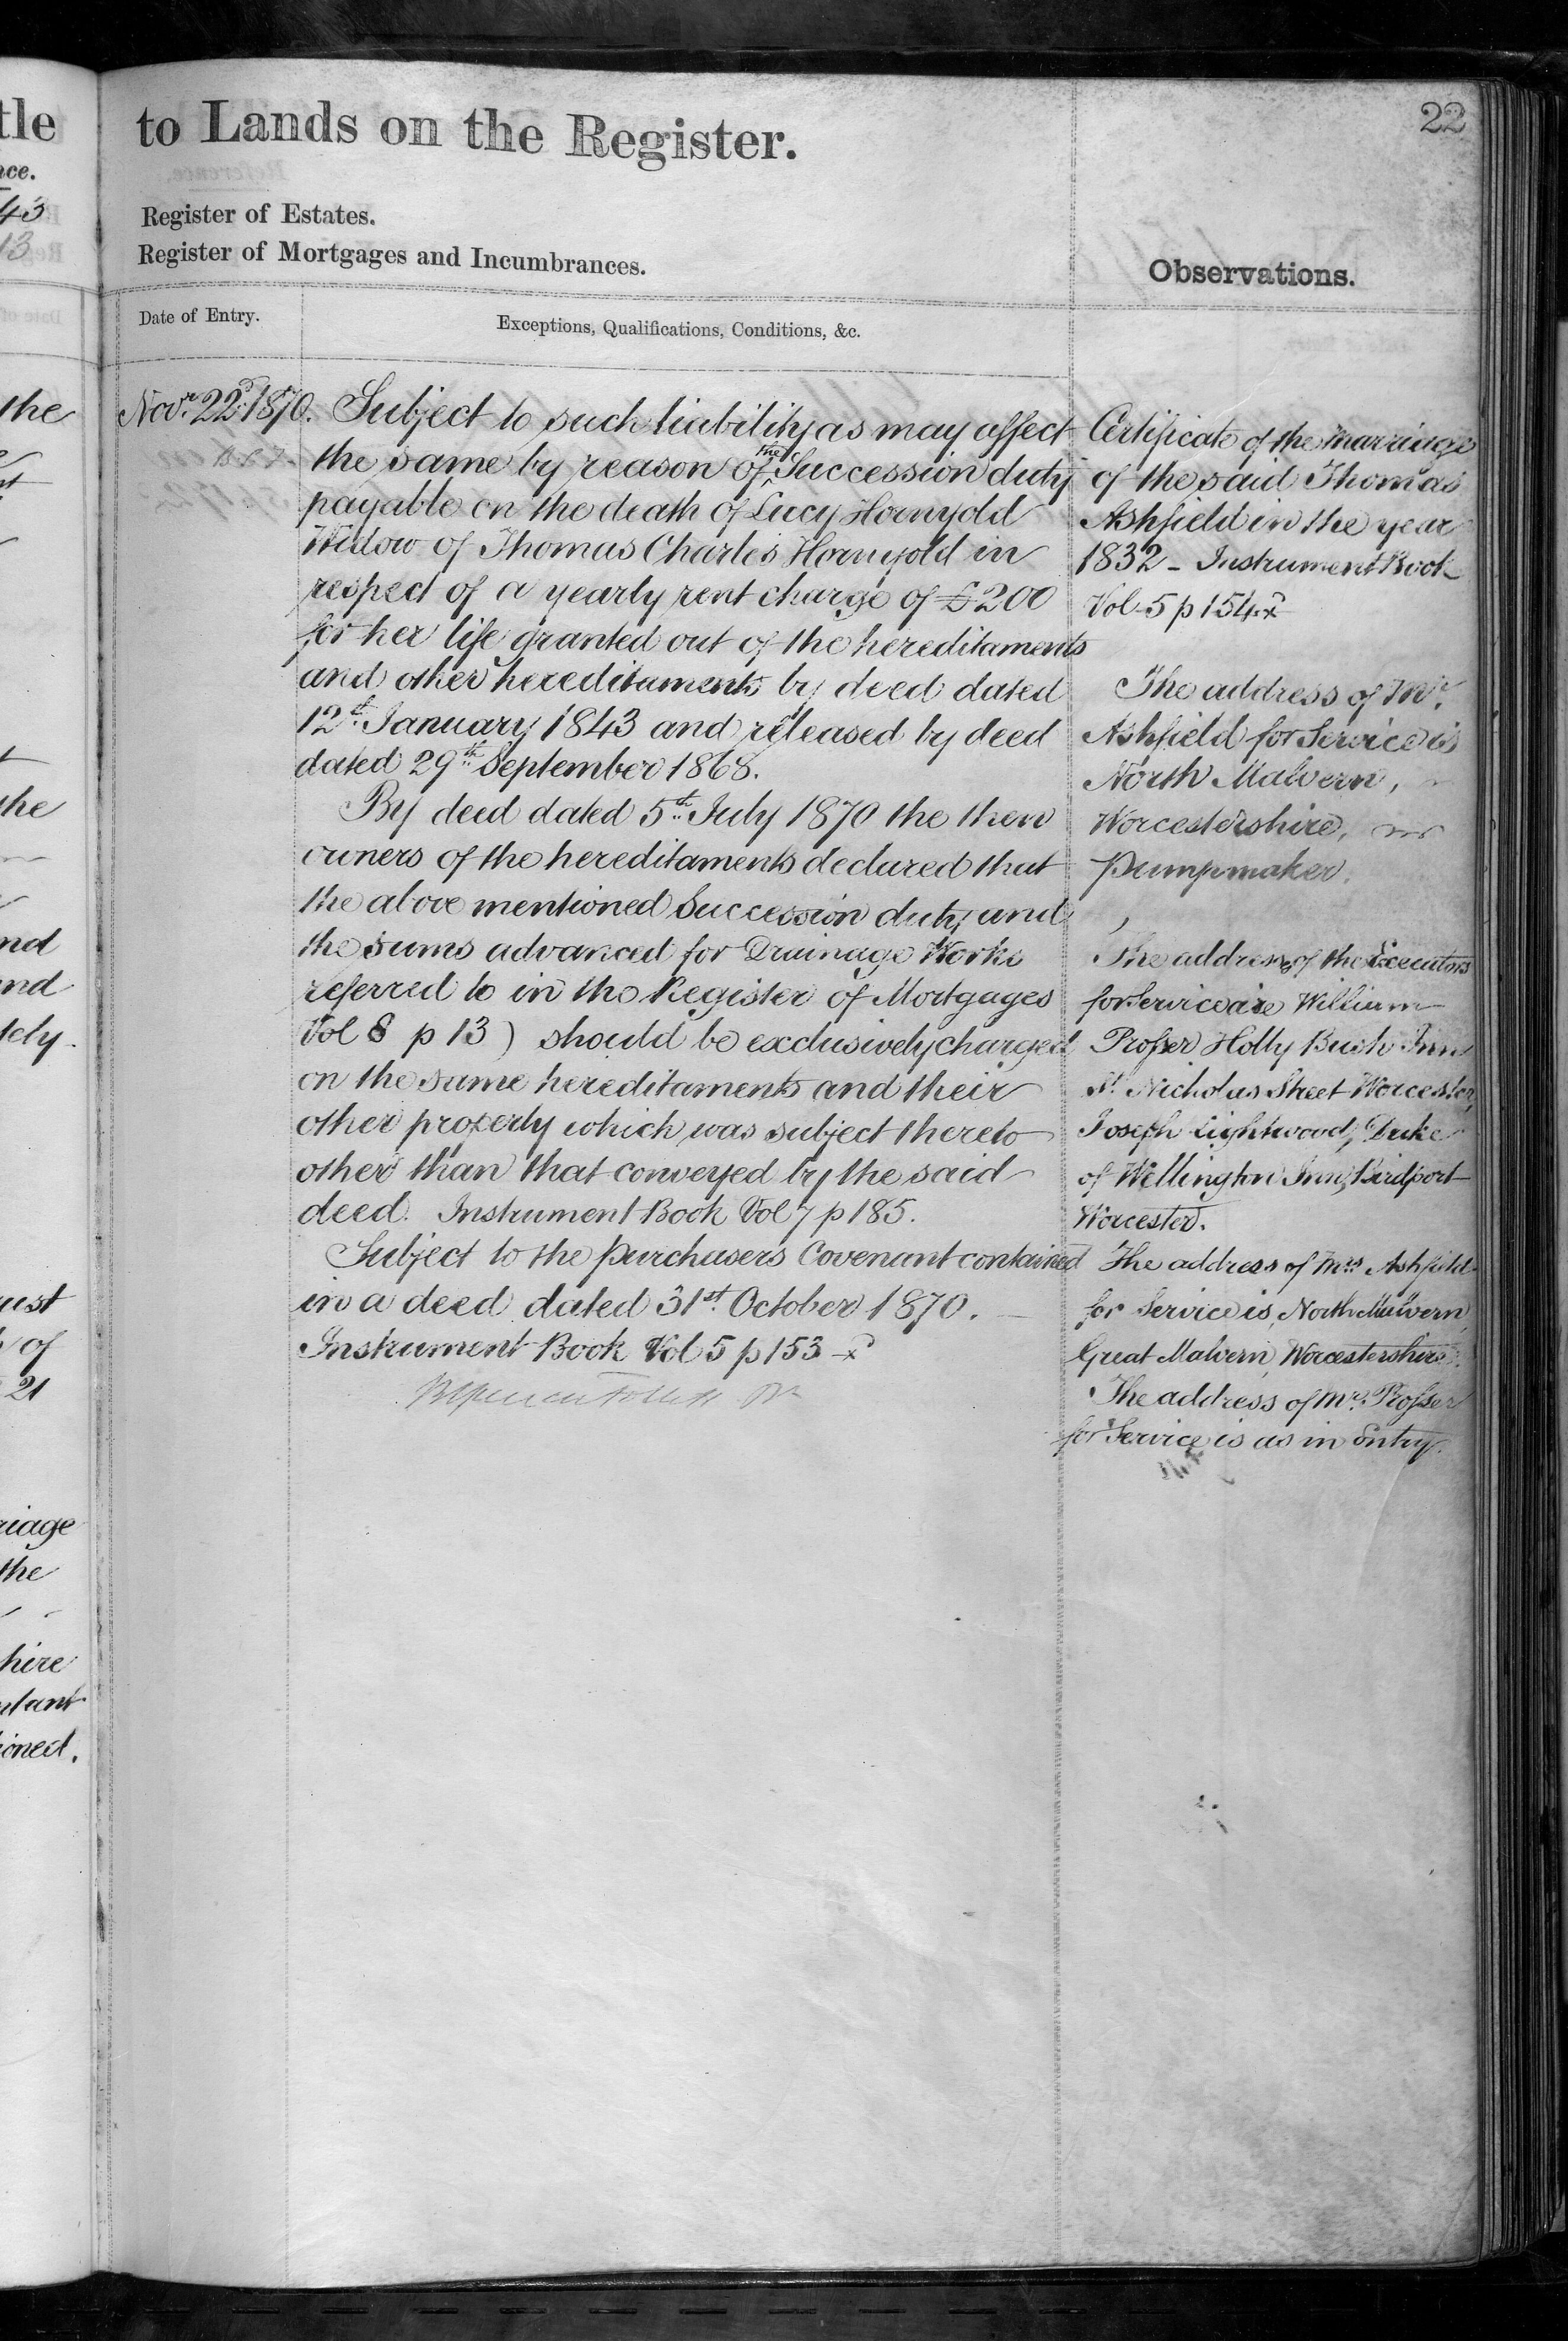 tle
to Lands on the Register.
22
nce.
43
13
Register of Estates.
Register of Mortgages and Incumbrances.
Observations.
Date of Entry.
Exceptions, Qualifications, Conditions, &c.
Novr. 22d. 1870.
Subject to such liability as may affect
the same by reason of the Succession duty
payable on the death of Lucy Hornyold
Widow of Thomas Charles Hornyold in
respect of a yearly rent charge of £200
for her life granted out of the hereditaments
and other hereditaments by deed dated
12th. January 1843 and released by deed
dated 29th. September 1868.
By deed dated 5th. July 1870 the then
owners of the hereditaments declared that
the above mentioned Succession duty and
the sums advanced for Drainage Works
referred to in the Register of Mortgages
Vol 8 p 13) should be exclusively charged
on the same hereditaments and their
other property which was subject thereto
other than that conveyed by the said
deed. Instrument Book Vol 7 p 185.
Subject to the purchasers Covenant contained
in a deed dated 31st. October 1870.
Instrument Book Vol 5 p 153
Certificate of the marriage
of the said Thomas
Ashfield in the year
1832 - Instrument Book
Vol 5 p 154
The address of Mr.
Ashfield for Service is
North Malvern,
Worcestershire,
Pumpmaker.
The address of the Executors
for Service are William
Prosser Holly Bush Inn
St. Nicholas Street Worcester,
Joseph Lightwood, Duke
of Wellington Inn, Birdport
Worcester.
The address of Mrs. Ashfield
for Service is, North Malvern,
Great Malvern, Worcestershire.
The address of Mr. Prosser
for Service is as in Entry.
the
he
nd
nd
tely.
ust
of
21
riage
the
hire
utant
ioned.